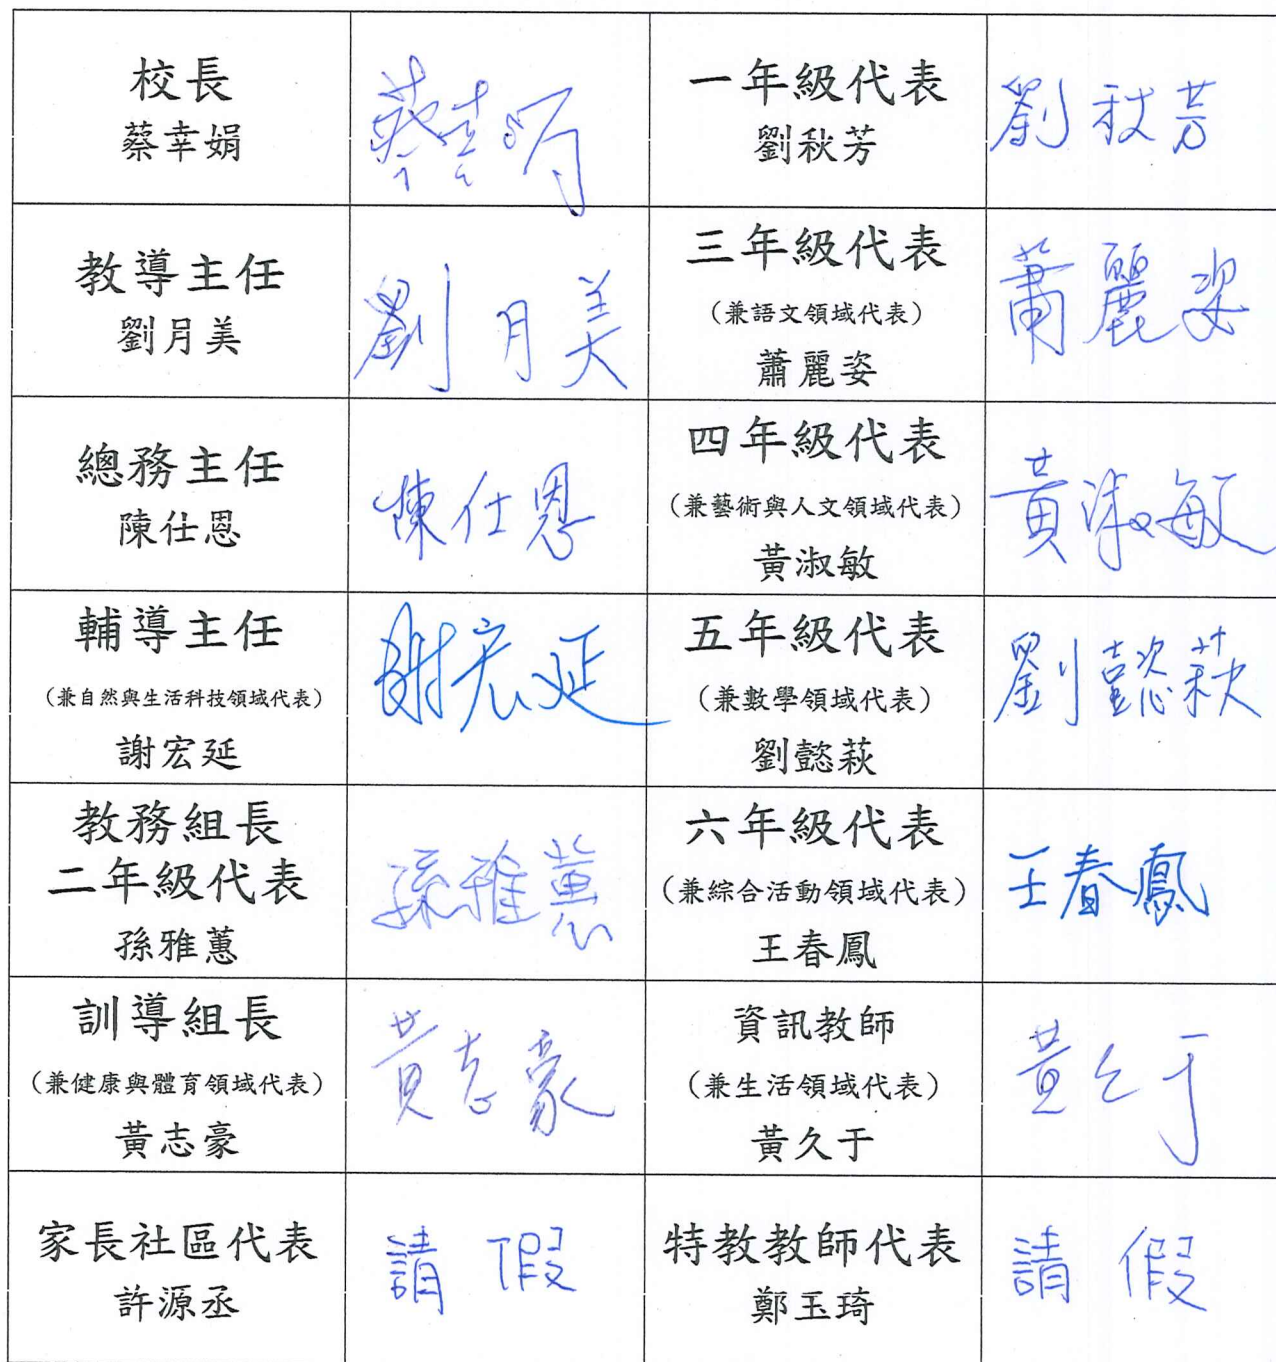 校長
蔡幸娟
蔡幸娟
一年級代表
劉秋芳
劉秋芳
教導主任
劉月美
劉月美
三年級代表
（兼語文領域代表）
蕭麗姿
蕭麗姿
總務主任
陳仕恩
陳仕恩
四年級代表
（兼藝術與人文領域代表）
黃淑敏
黃淑敏
輔導主任
（兼自然與生活科技領域代表）
謝宏延
謝宏延
五年級代表
（兼數學領域代表）
劉懿萩
劉懿萩
教務組長
二年級代表
孫雅蕙
孫雅蕙
六年級代表
（兼綜合活動領域代表）
王春鳳
王春鳳
訓導組長
（兼健康與體育領域代表）
黃志豪
黃志豪
資訊教師
（兼生活領域代表）
黃久于
黃久于
家長社區代表
許源丞
請假
特教教師代表
鄭玉琦
請假